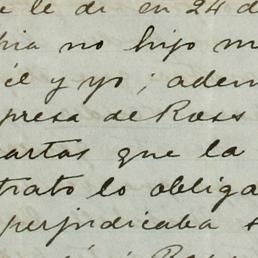 le di en 24 d
hia no hijo m
él y yo; adem
presa de Ross
cartas que la
trato lo obliga
perjudicaba s